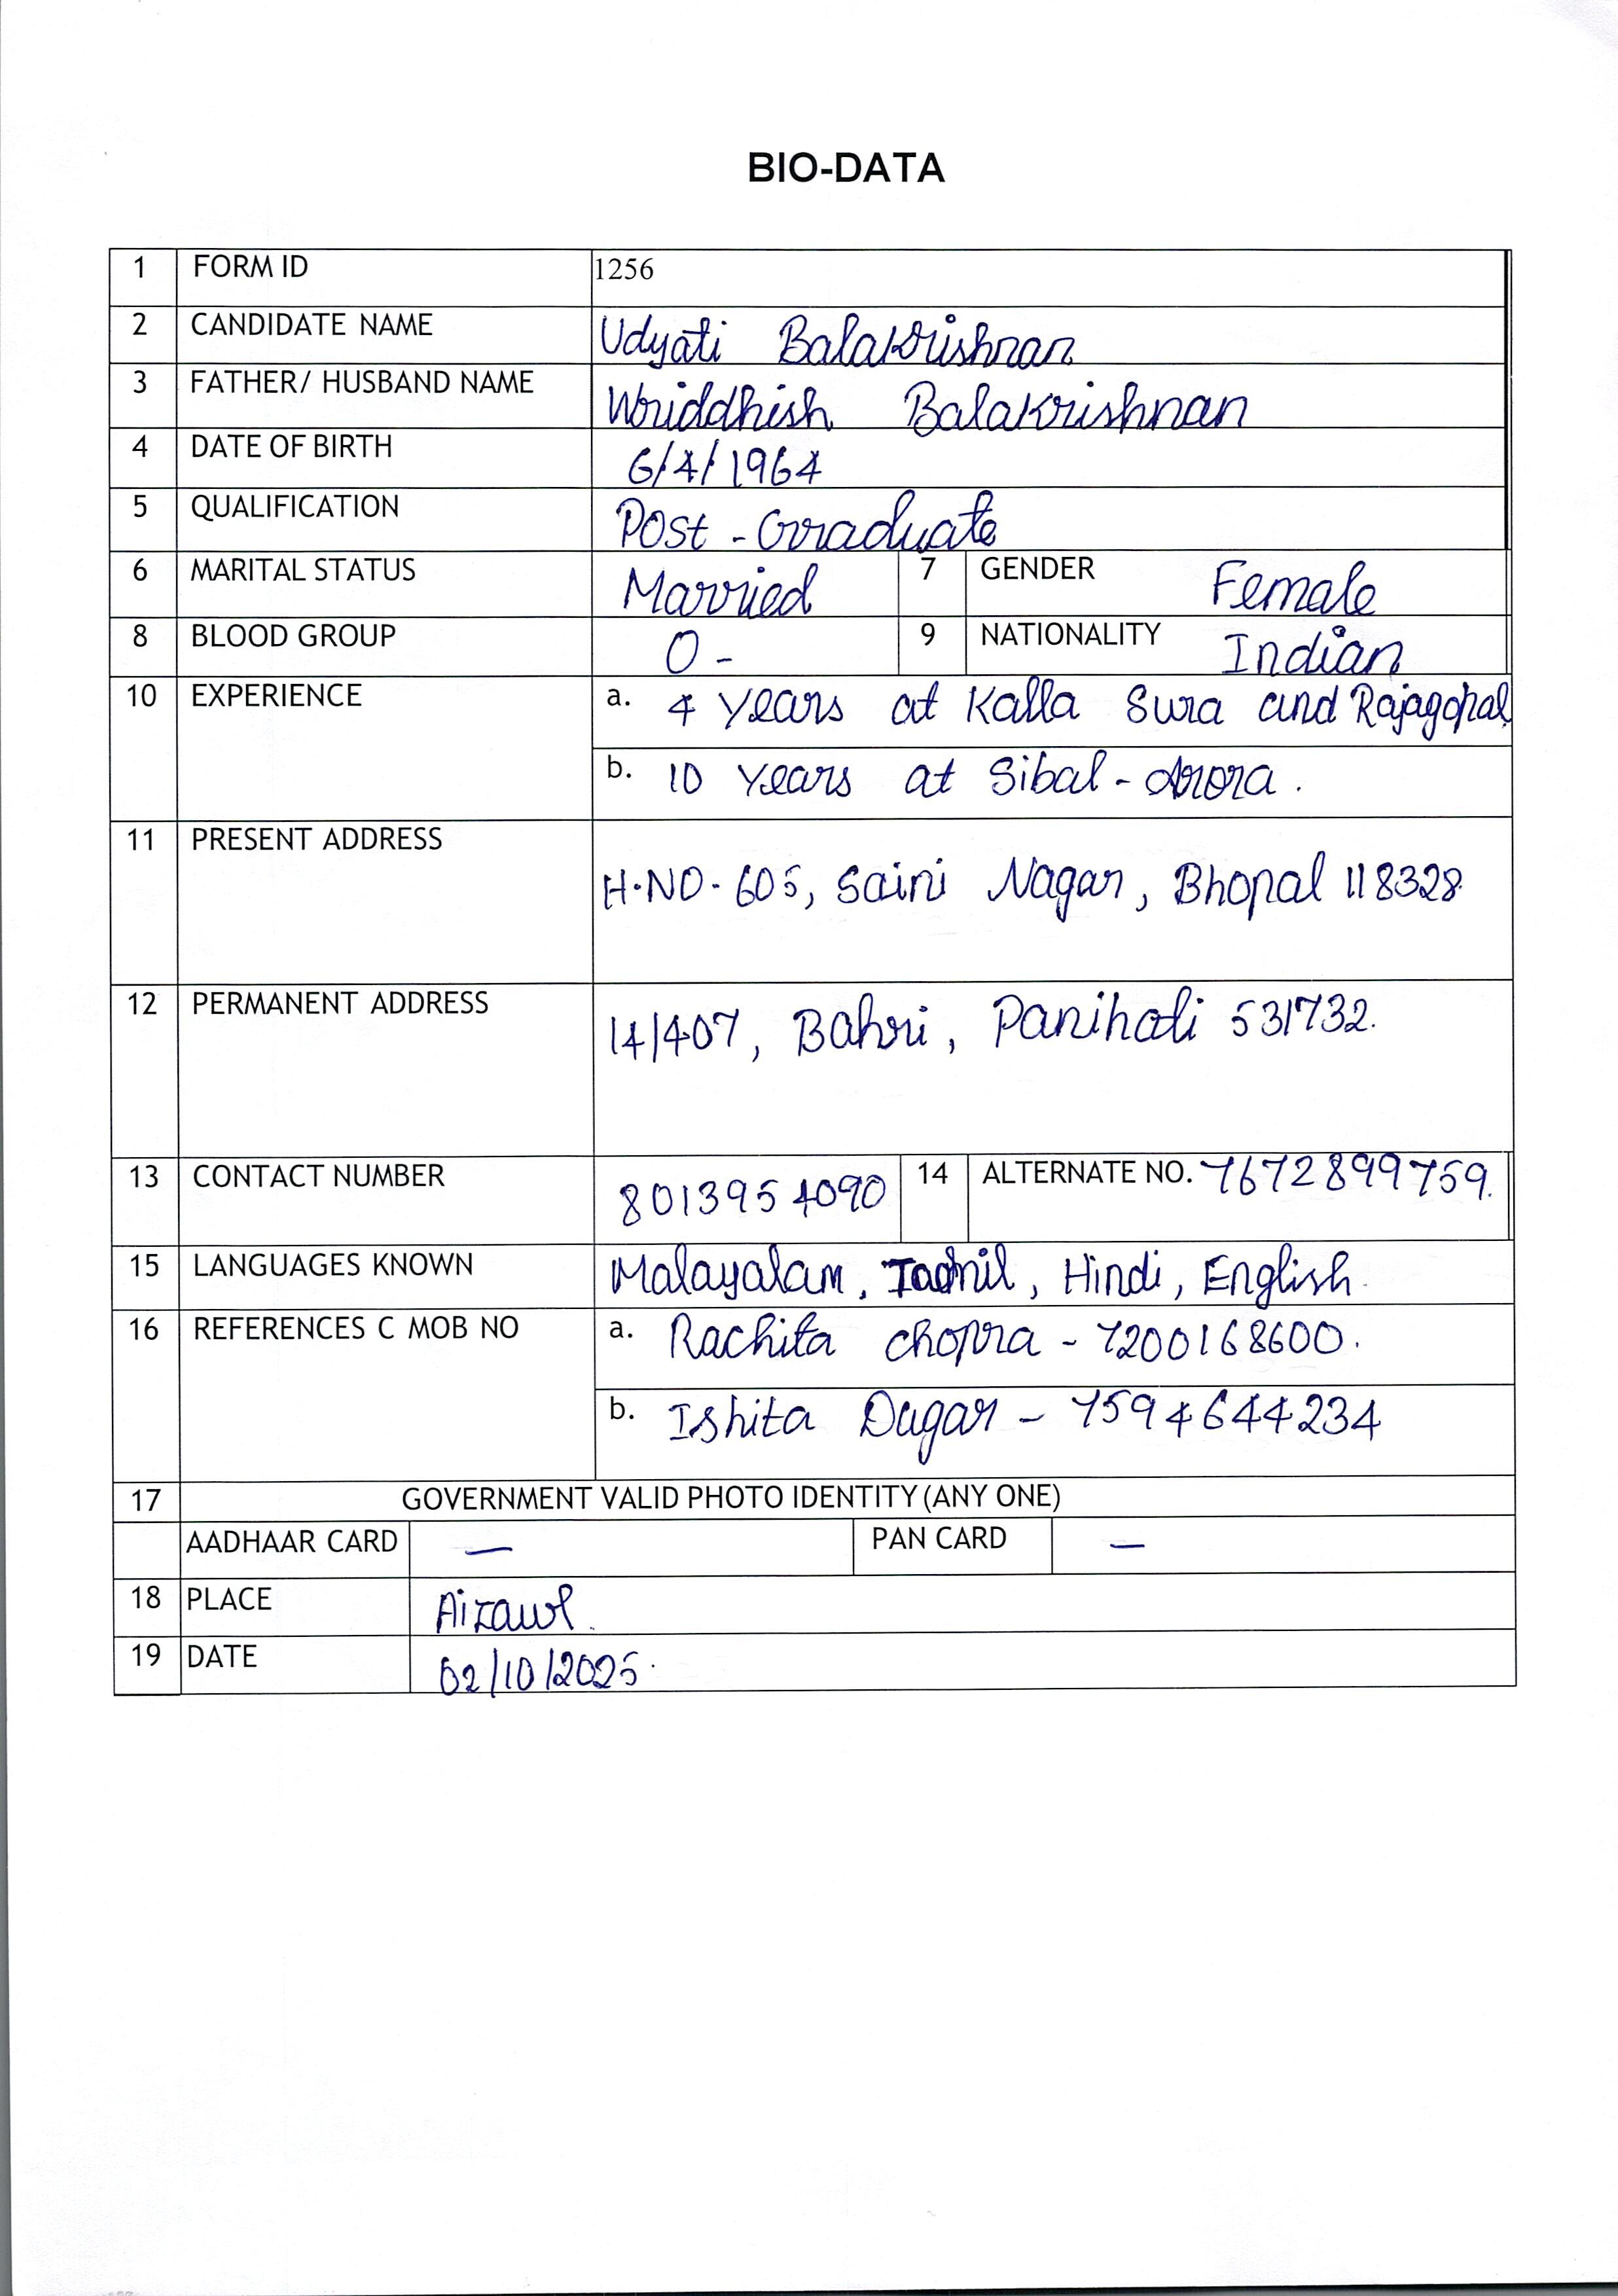 BIO-DATA
1 FORM ID 1256
2 CANDIDATE NAME Udyati Balakrishnan
3 FATHER/ HUSBAND NAME Wriddhish Balakrishnan
4 DATE OF BIRTH 6/4/1964
5 QUALIFICATION Post-Graduate
6 MARITAL STATUS Married 7 GENDER Female
8 BLOOD GROUP O- 9 NATIONALITY Indian
10 EXPERIENCE a. 4 Years at Kalla Sura and Rajagopal
b. 10 Years at Sibal-Arora.
11 PRESENT ADDRESS H.NO-605, Saini Nagar, Bhopal 118328.
12 PERMANENT ADDRESS 14/407, Bahri, Panihati 531732.
13 CONTACT NUMBER 8013954090 14 ALTERNATE NO. 7672899759.
15 LANGUAGES KNOWN Malayalam, Tamil, Hindi, English.
16 REFERENCES C MOB NO a. Rachita chopra - 7200168600.
b. Ishita Dugar - 7594644234
17 GOVERNMENT VALID PHOTO IDENTITY (ANY ONE)
AADHAAR CARD — PAN CARD —
18 PLACE Aizawl.
19 DATE 02/10/2025.